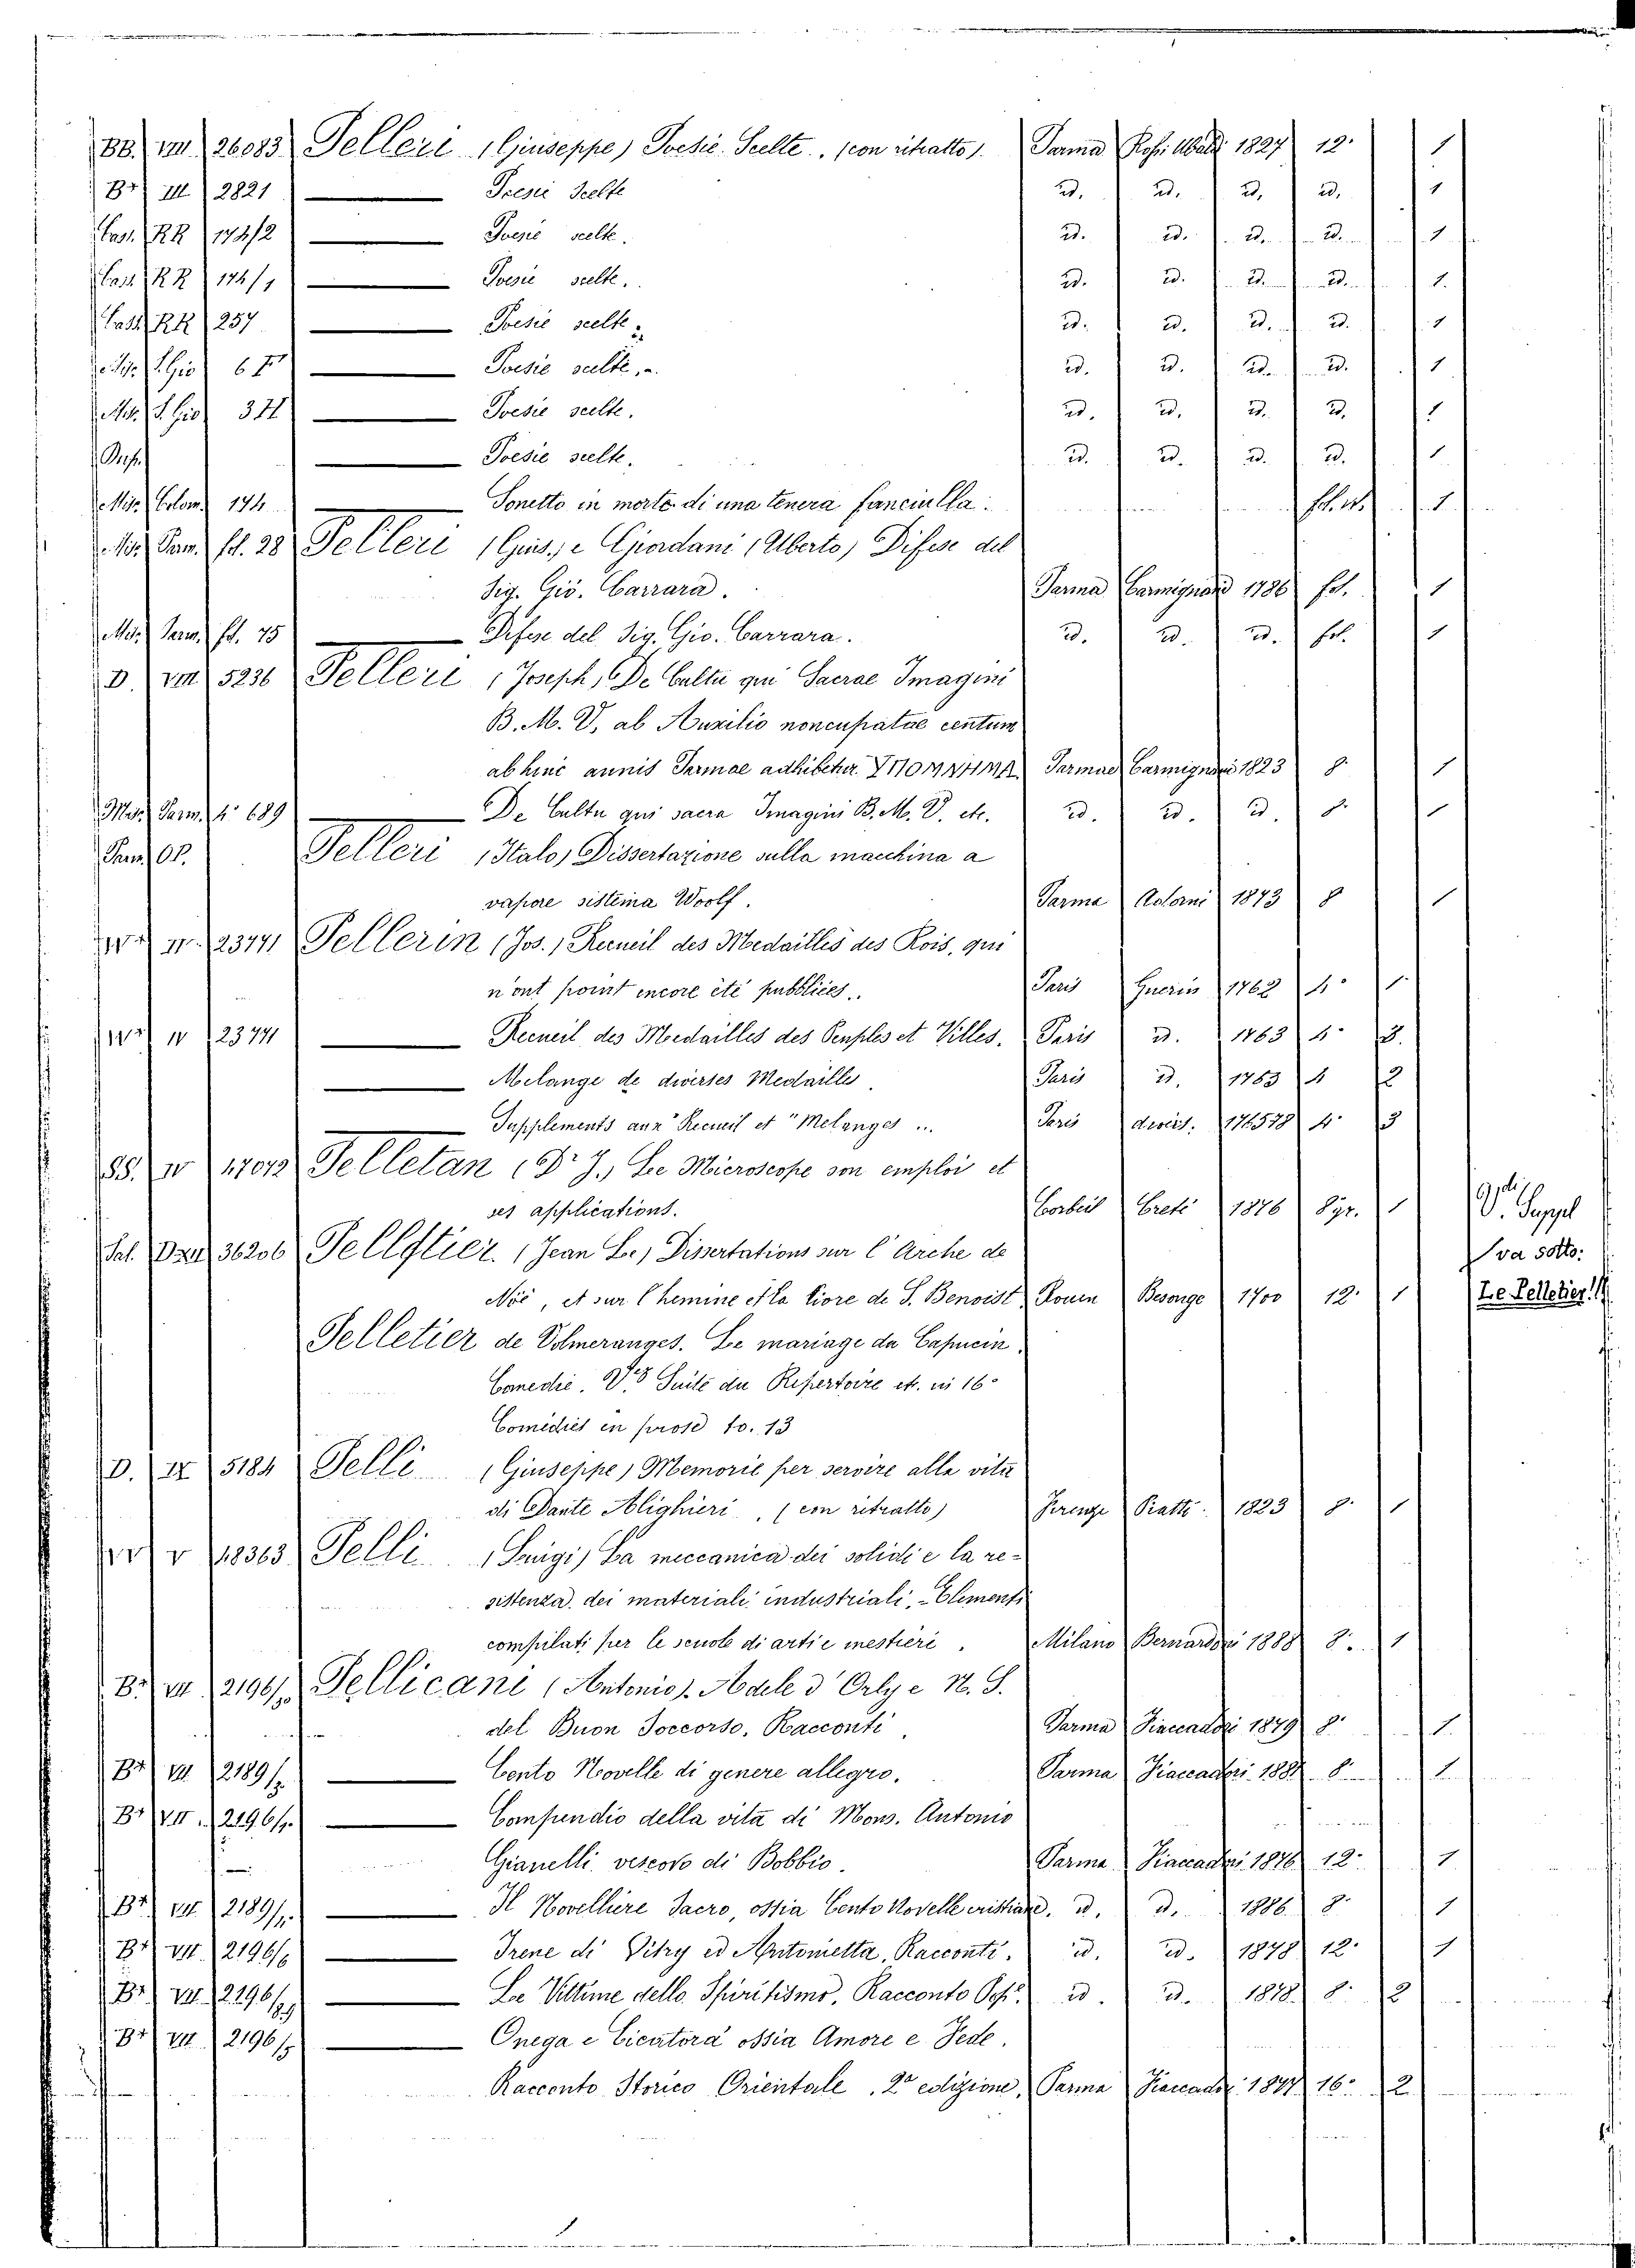 BB. VIII 26083 Pelleri (Giuseppe) Poesie Scelte. (con ritratto). Parma Rossi Ubaldi 1827 12° 1
Bª III 2821 Poesie Scelte id. id. id. id. 1
Cass. RR 174/2 Poesie scelte. id. id. id. id. 1
Cass. RR 174/1 Poesie scelte. id. id. id. id. 1
Cass. RR 257 Poesie scelte id. id. id. id. 1
Misc. S. Gio 6 Poesie scelte, id. id. id. id. 1
Misc. S. Gio 34 Poesie scelte. id. id. id. id. 1
Poesie scelte. id. id. id. id. 1
Misc. Colom. 174 Sonetto in morte di una tenera fanciulla. 1
Mis. Parm. fol. 28 Pelleri (Gius.) e Giordani (Alberto) Difese del
Sig. Gio. Carrara. Parma Carmignani 1786 fol. 1
Mis. Parm. fol. 75 Difese del Sig. Gio. Carrara. id. id. id. fol. 1
D. VIII 5236 Pelleri (Joseph) De Cultu qui Sacrae Imagini
B. M. V. ab Auxilio noncupatae centum
ab hinc annis Parmae adhibetur ΥΠΟΜΝΗΜΑ Parmae Carmignani 1823 8° 1
Misc. Parm. 4° 689 De Cultu qui sacra Imagini B. M. V. etc. id. id. id. 8° 1
Parm. Op. Pelleri (Italo) Dissertazione sulla macchina a
vapore sistema Woolf. Parma Adorni 1873 8 1
23741 Pellerin (Jos.) Recueil des Medailles des Rois, qui
n'ont point encore été pubblices. Paris Guerin 1762 4° 1
IV 23741 Recueil des Medailles des Peuples et Villes. Paris id. 1763 4° 3.
Melange de diverses Medailles. Paris id. 1763 4 2
Supplements aux "Recueil et "Melanges ... Paris divers. 1765 78 4° 3
SS. IV Pelletan (Dr J.) Le Microscope son emploi et
ses applications. Corbeil Creté 1876 8 gr. 1 V. Suppl
Sal. 36206 Pellstier (Jean L.) Dissertations sur l'Arche de va sotto:
Noé, et sur l'hemine et la livre de S. Benoist Rouen Besonge 1700 12° 1 Le Pelletier!!
Pelletier de Volmeranges. Le mariage du Capucin
Comedie. V. Suite du Repertoire etc. in 16°
Comédies en prose to. 13
D. IX 5184 Pelli (Giuseppe) Memorie per servire alla vita
di Dante Alighieri, (con ritratto) Firenze Piatti 1823 8° 1
V 18363 Pelli (Luigi) La meccanica dei solidi e la re-
sistenza dei materiali industriali, - Elementi
compilati per le scuole di arti e mestieri. Milano Bernardoni 1888 8°. 1
Bª VII 2196/ Pellicani (Antonio). Adele d'Orly e N. S.
del Buon Soccorso, Racconti Parma Fiaccadori 1879 8° 1
Bª VII 2189/ Cento Novelle di genere allegro. Parma Fiaccadori 188 8° 1
Bª VII 2196/ Compendio della vita di Mons. Antonio
Gianelli vescovo di Bobbio. Parma Fiaccadori 1876 12° 1
Bª VII 2189/ Il Novelliere Sacro, ossia Cento Novelle cristiane. id. id. 1886 8° 1
Bª VII 2196/ Irene di Vitry ed Antonietta, Racconti. id. id. 1878 12° 1
Bª VII 2196/ Le Vittime dello Spiritismo, Racconto id. id. 1878 8° 2
Bª VII 2196/ Onega e Cicatora ossia Amore e Fede.
Racconto Storico Orientale, 2ª edizione Parma Fiaccadori 1877 16° 2